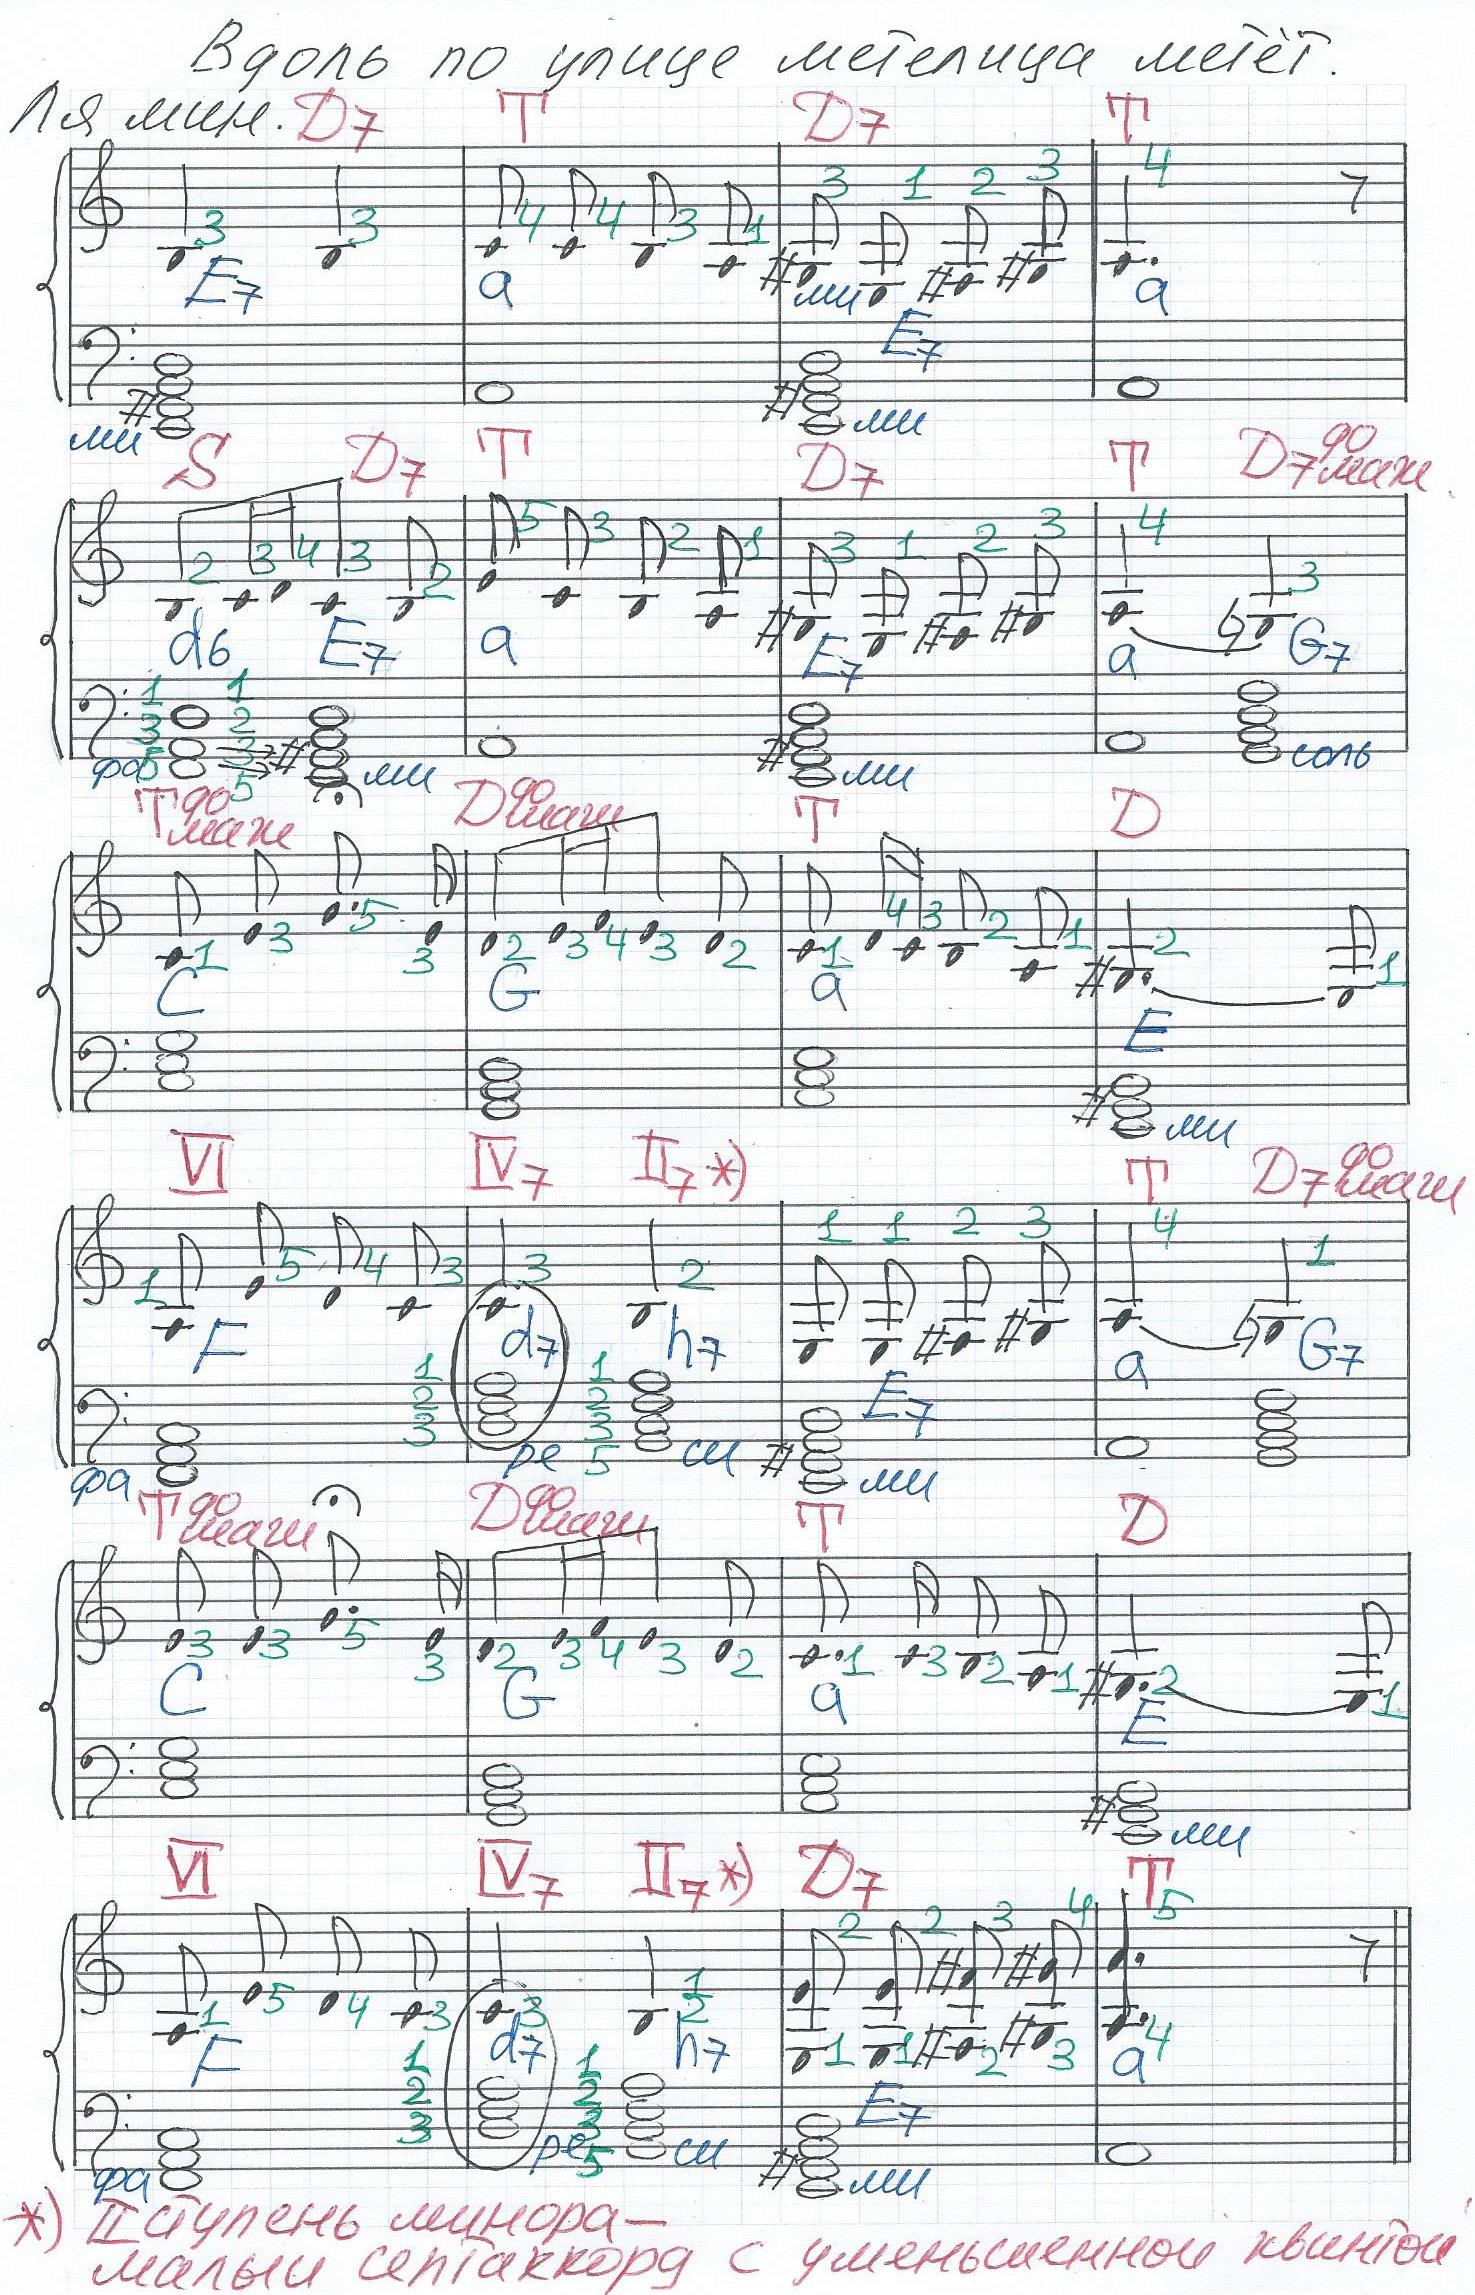 Вдоль по улице метелица метёт.
Ля мин. D7 T D7 T
3 3 4 4 3 1 3 1 2 3 4
E7 a ми E7 a
ми ми
S D7 T D7 T D7 до маж.
2 3 4 3 2 5 3 2 1 3 1 2 3 4 3
d6 E7 a E7 a G7
1 1
3 2
фа 5 3 ми ми соль
5
T до маж D до маж T D
1 3 5 3 2 3 4 3 2 1 4 3 2 1 2 1
C G a E
ми
VI IV7 II7 *) T D7 до маж
1 5 4 3 3 2 1 1 2 3 4 1
F d7 h7 E7 a G7
1 1
2 2
3 3
фа ре 5 си ми
T до маж D до маж T D
3 3 5 3 2 3 4 3 2 1 3 2 1 2 1
C G a E
ми
VI IV7 II7 *) D7 T
1 5 4 3 3 1 2 2 2 3 4 5
F d7 h7 1 1 2 3 a 4
1 1 E7
2 2
3 3
фа ре 5 си ми
*) II ступень минора –
малый септаккорд с уменьшенной квинтой